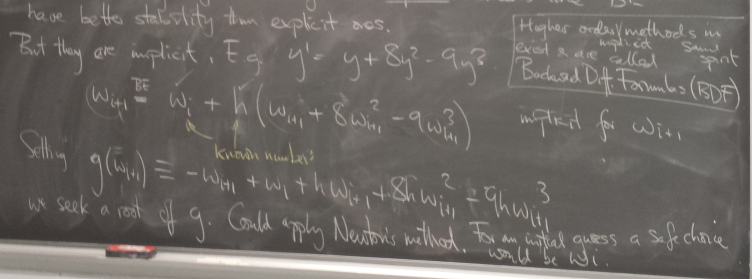 have better stability than explicit ones.
But they are implicit. E.g. y' = y + 8y² - 9y³.
Higher order methods in
implicit same
exist & are called spirit
Backward Diff. Formulas (BDF)
(w_{i+1} =^{BE} w_i + h (w_{i+1} + 8w_{i+1}² - 9w_{i+1}³) implicit for w_{i+1}
known numbers
Setting g(w_{i+1}) ≡ -w_{i+1} + w_i + hw_{i+1} + 8hw_{i+1}² - 9hw_{i+1}³
we seek a root of g. Could apply Newton's method. For an initial guess a safe choice
would be w_i.